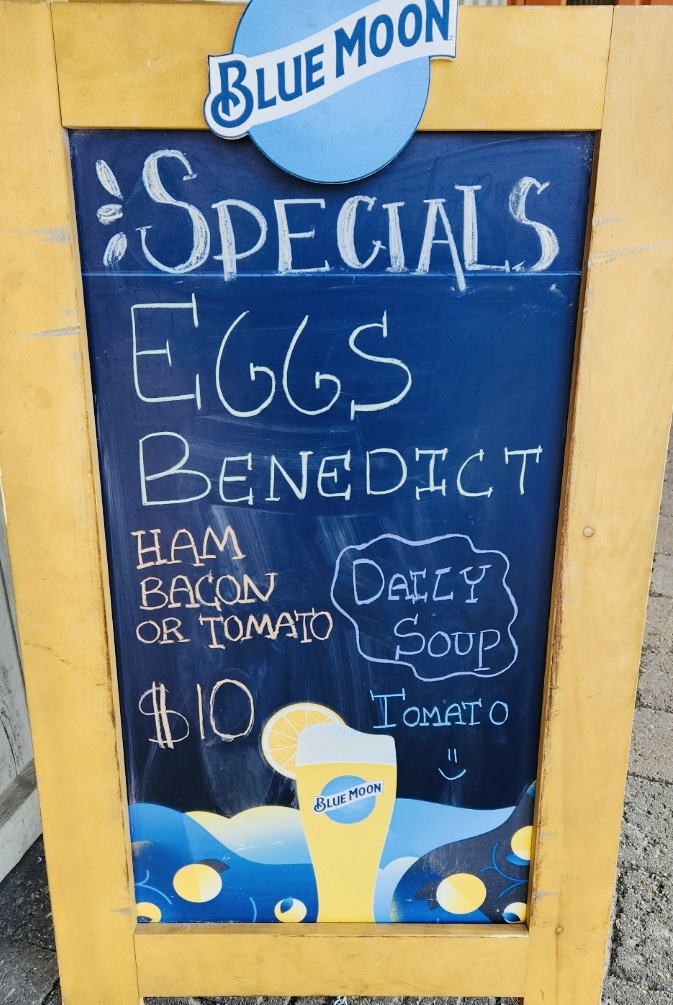 BLUE MOON
SPECIALS
EGGS
BENEDICT
HAM
BACON
OR TOMATO
$10
DAILY
SOUP
TOMATO
BLUE MOON